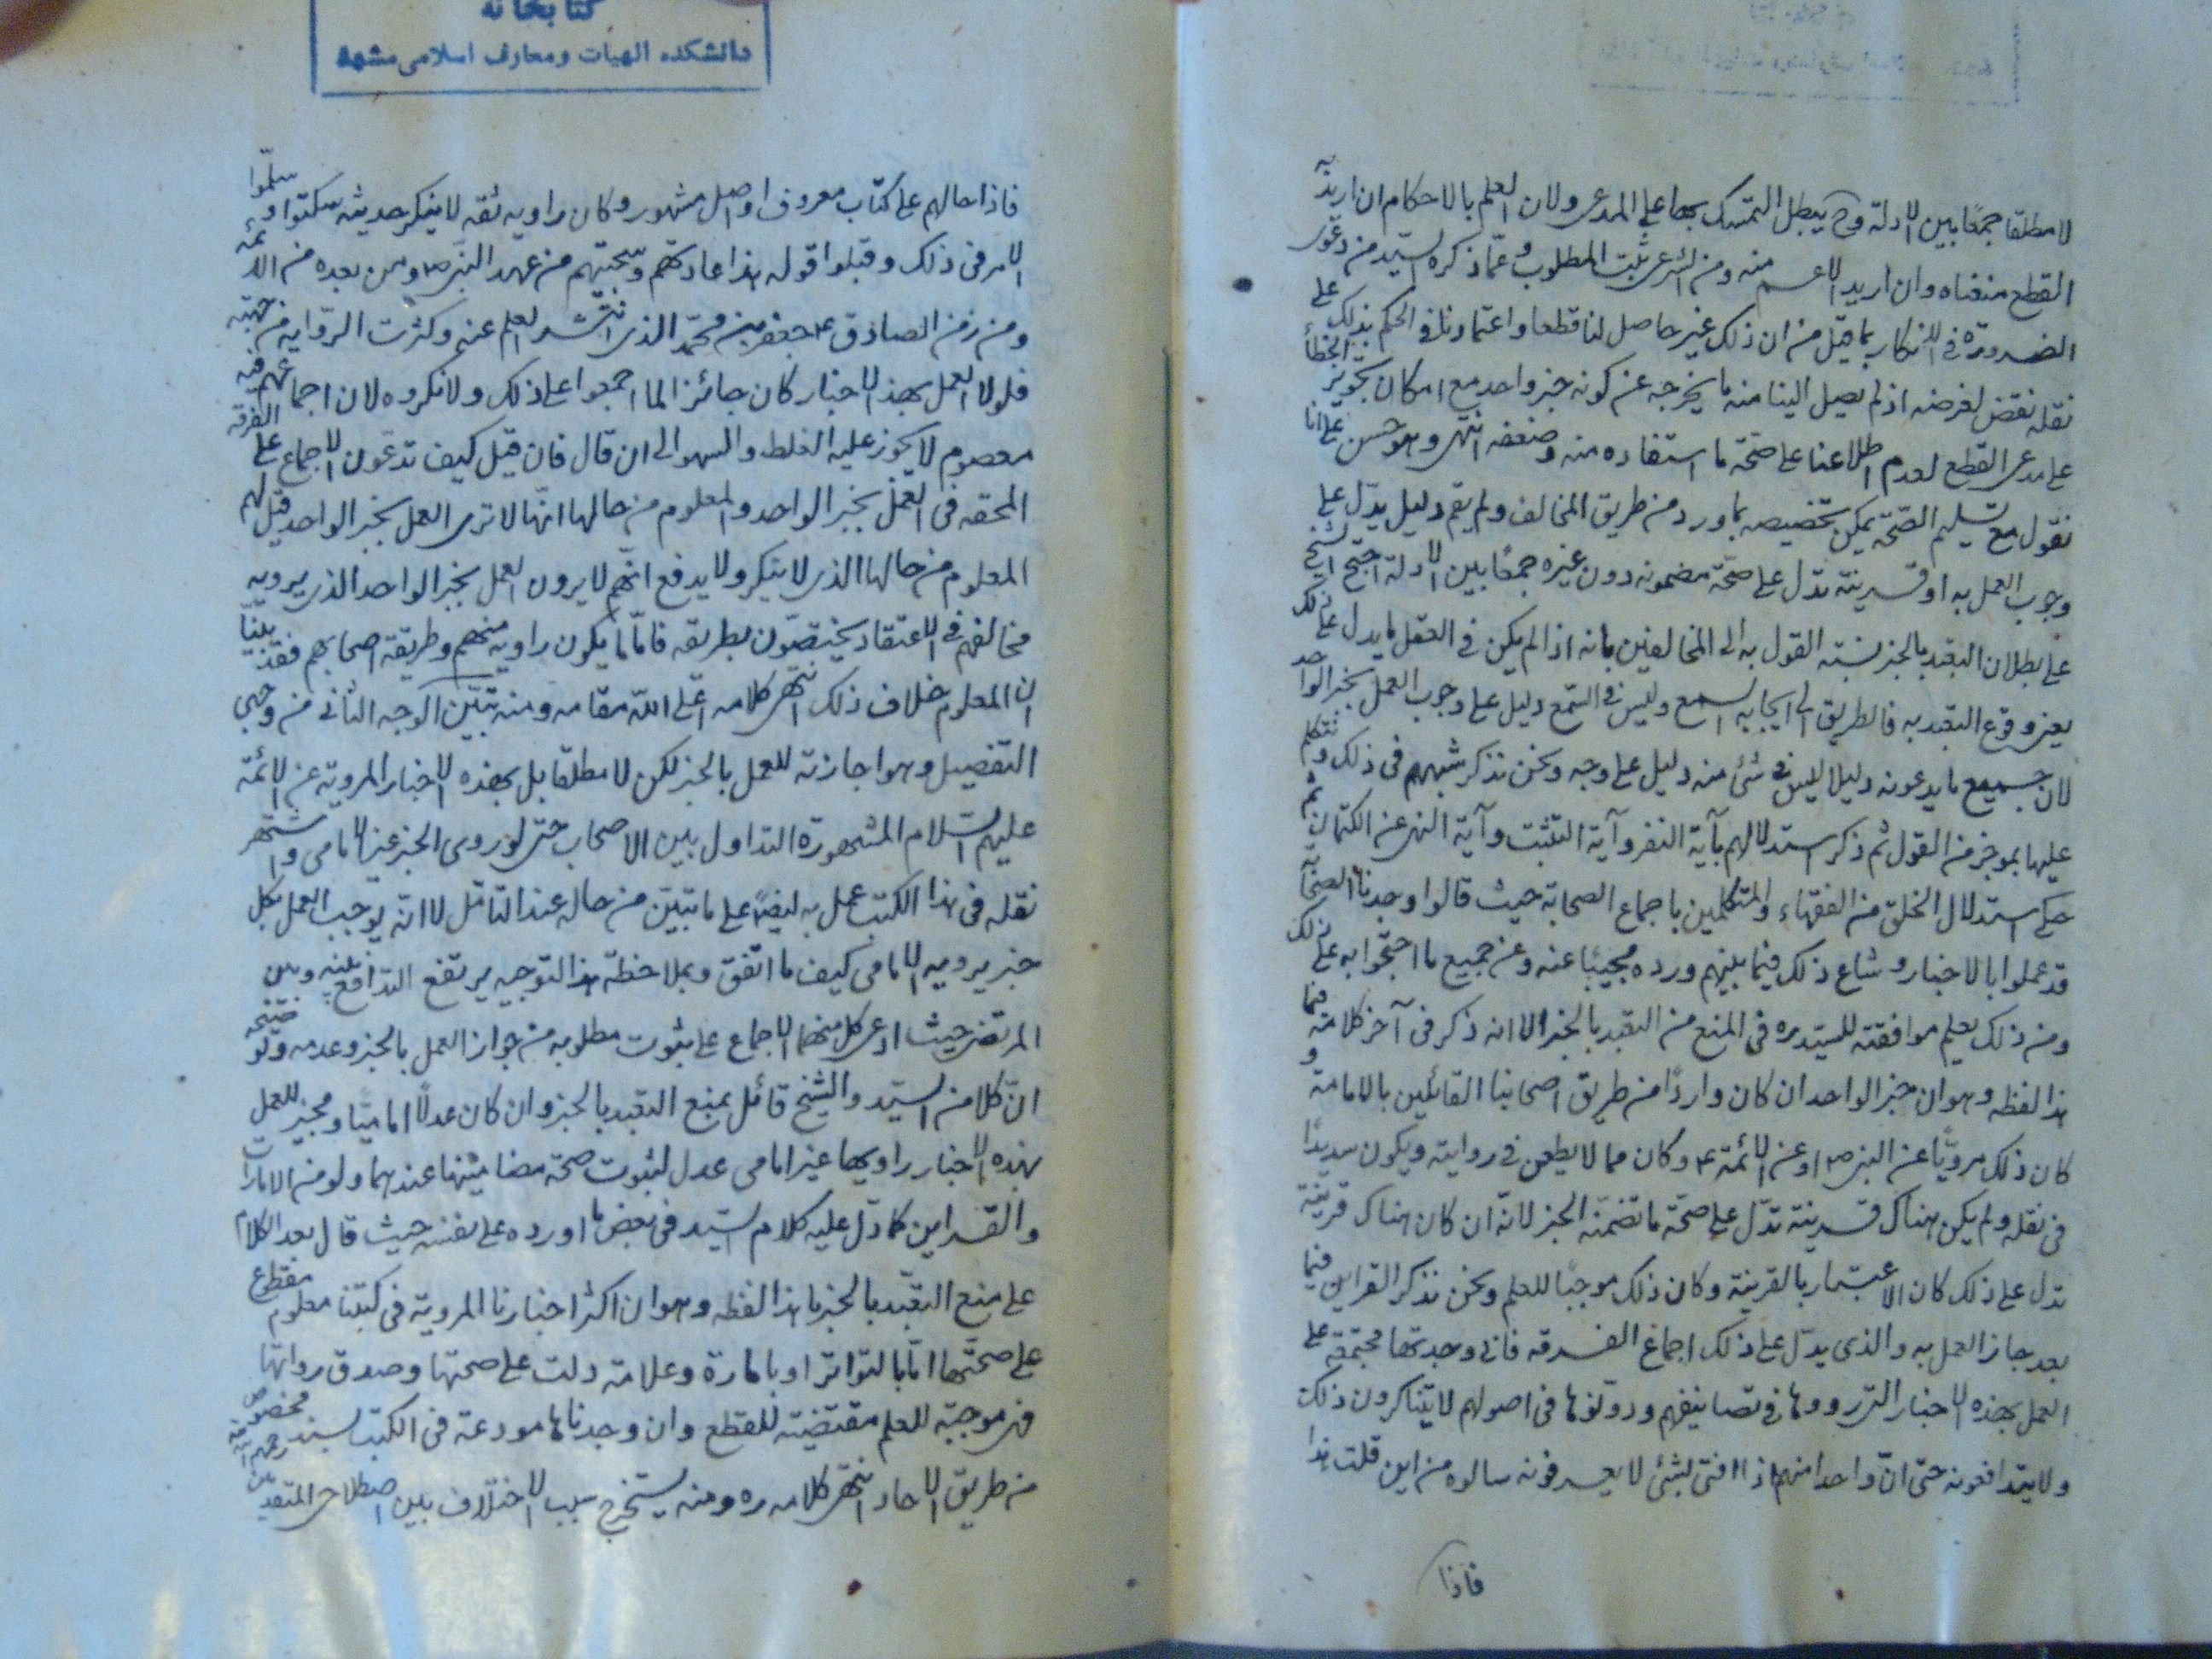 لا مطلقا جمعًا بين الادلة وح يبطل التمسك بها على المدعى ولان العلم بالاحكام ان اريد به
القطع منعناه وان اريد الاعم منه ومن الشرعى ثبت المطلوب وعمّا ذكره السيّد من دعوى
الضرورة فى الانكار بما قيل من ان ذلك غير حاصل لنا قطعا واعتمادنا فى الحكم بذلك على
نقله نقض لغرضه اذ لم يصل الينا منه ما يخرجه عن كونه خبر واحد مع امكان تجويز الخطأ
على مدعى القطع لعدم اطلاعنا على صحّة ما استفاده منه وضعفه انتهى وهو حسن على انا
نقول مع تسليم الصّحّة يمكن تخصيصه بما ورد من طريق المخالف ولم يقم دليل يدّل على
وجوب العمل به او قرينة تدل على صحّة مضمونه دون غيره جمعًا بين الادلة احتج الشيخ
على بطلان التعبد بالخبر نسبته القول به الى المخالفين بانه اذا لم يكن فى العقل ما يدل على ذلك
يعنى وقوع التعبد به فالطريق الى ايجابه السمع وليس فى السّمع دليل على وجوب العمل بخبر الواحد
لان جميع ما يدعونه دليلا ليس فى شئ منه دليل على وجه ونحن نذكر شبههم فى ذلك ونتكلم
عليها بموجز من القول ثم ذكر استدلالهم بآية النفر وآية التثبت وآية النهى عن الكتمان ثم
حكى استدلال الخلق من الفقهاء والمتكلمين باجماع الصحابة حيث قالوا وجدنا الصحابة
قد عملوا بالاخبار وشاع ذلك فيما بينهم ورده مجيبًا عنه وعن جميع ما احتجّوا به على ذلك
ومن ذلك يعلم موافقته للسيّد ره فى المنع من التعبد بالخبر الا انه ذكر فى آخر كلامه فيما
هذا لفظه وهو ان خبر الواحد ان كان واردًا من طريق اصحابنا القائلين بالامامة و
كان ذلك مرويًّا عن النبى ص او عن الائمة ع وكان مما لا يطعن فى روايته ويكون سديدًا
فى نقله ولم يكن هناك قرينة تدّل على صحّة ما تضمنّه الخبر لانّه ان كان هناك قرينة
تدل على ذلك كان الاعتبار بالقرينة وكان ذلك موجبًا للعلم ونحن نذكر القراين فيما
بعد جاز العمل به والذى يدّل على ذلك اجماع الفرقه فانى وجدتها مجتمعة على
العمل بهذه الاخبار التى رووها فى تصانيفهم ودوّنوها فى اصولهم لا يتناكرون ذلك
ولا يتدافعونه حتى انّ واحدا منهم اذا افتى بشئ لا يعرفونه سالوه من اين قلت هذا
فاذا
كتابخانه
دانشكده الهيات ومعارف اسلامى مشهد
فاذا احالهم على كتاب معروف او اصل مشهور وكان راويه ثقه لا ينكر حديثه سكتوا وسلّموا
الامر فى ذلك وقبلوا قوله هذا عادتهم وسجيّتهم من عهد النبى ص ومن بعده من الائمة
ومن زمن الصادق ع جعفر بن محمّد الذى انتشر العلم عنه وكثرت الرّوايه من جهته
فلولا العمل بهذ الاخبار كان جائزا لما اجمعوا على ذلك ولانكروه لان اجماعهم فيه
معصوم لا يجوز عليه الغلط والسهو الى ان قال فان قيل كيف تدعون الاجماع على الفرقه
المحقه فى العمل بخبر الواحد والمعلوم من حالها انّها لا ترى العمل بخبر الواحد قيل لهم
المعلوم من حالها الذى لا ينكر ولا يدفع انّهم لا يرون العمل بخبر الواحد الذى يرويه
مخالفهم فى الاعتقاد يختصّون بطريقه فامّا ما يكون راويه منهم وطريقه اصحابهم فقد بيّنّا
ان المعلوم خلاف ذلك انتهى كلامه اعلى اللّه مقامه ومنه تبيّن الوجه الثانى من وجهى
التفصيل وهو اجازته للعمل بالخبر لكن لا مطلقا بل بهذه الاخبار المروية عن الائمة
عليهم السّلام المشهورة التداول بين الاصحاب حتى لو روى الخبر غير الامامى واشتهر
نقله فى هذا الكتب عمل به ايضًا على ما تبيّن من حاله عند التامّل لا انّه يوجب العمل بكل
خبر يرويه الامامى كيف ما اتفق وبملاحظة هذا التوجيه يرتفع التدافع بينه وبين
المرتضى حيث ادعى كل منهما الاجماع على ثبوت مطلوبه من جواز العمل بالخبر وعدمه وتوضيحه
انّ كلا من السيّد والشيخ قائل بمنع التعبد بالخبر وان كان عدلًا اماميًّا ومجيز للعمل
بهذه الاخبار راويها غير امامى عدل لثبوت صحة مضامينها عندهما ولو من الامارات
والقراين كما دّل عليه كلام السيّد فى بعض ما اورده على نفسه حيث قال بعد الكلام
على منع التعبّد بالخبر ما هذا لفظه وهو ان اكثر اخبارنا المروية فى كتبنا معلوم مقطوع
على صحّتها امّا بالتواتر او بامارة وعلامة دلت على صحتها وصدق رواتها
فهى موجبّه للعلم مقتضية للقطع وان وجدناها مودعة فى الكتب بسند مخصوص
من طريق الاحاد انتهى كلامه ره ومنه يستخرج سبب الاختلاف بين اصطلاحى المتقدمين